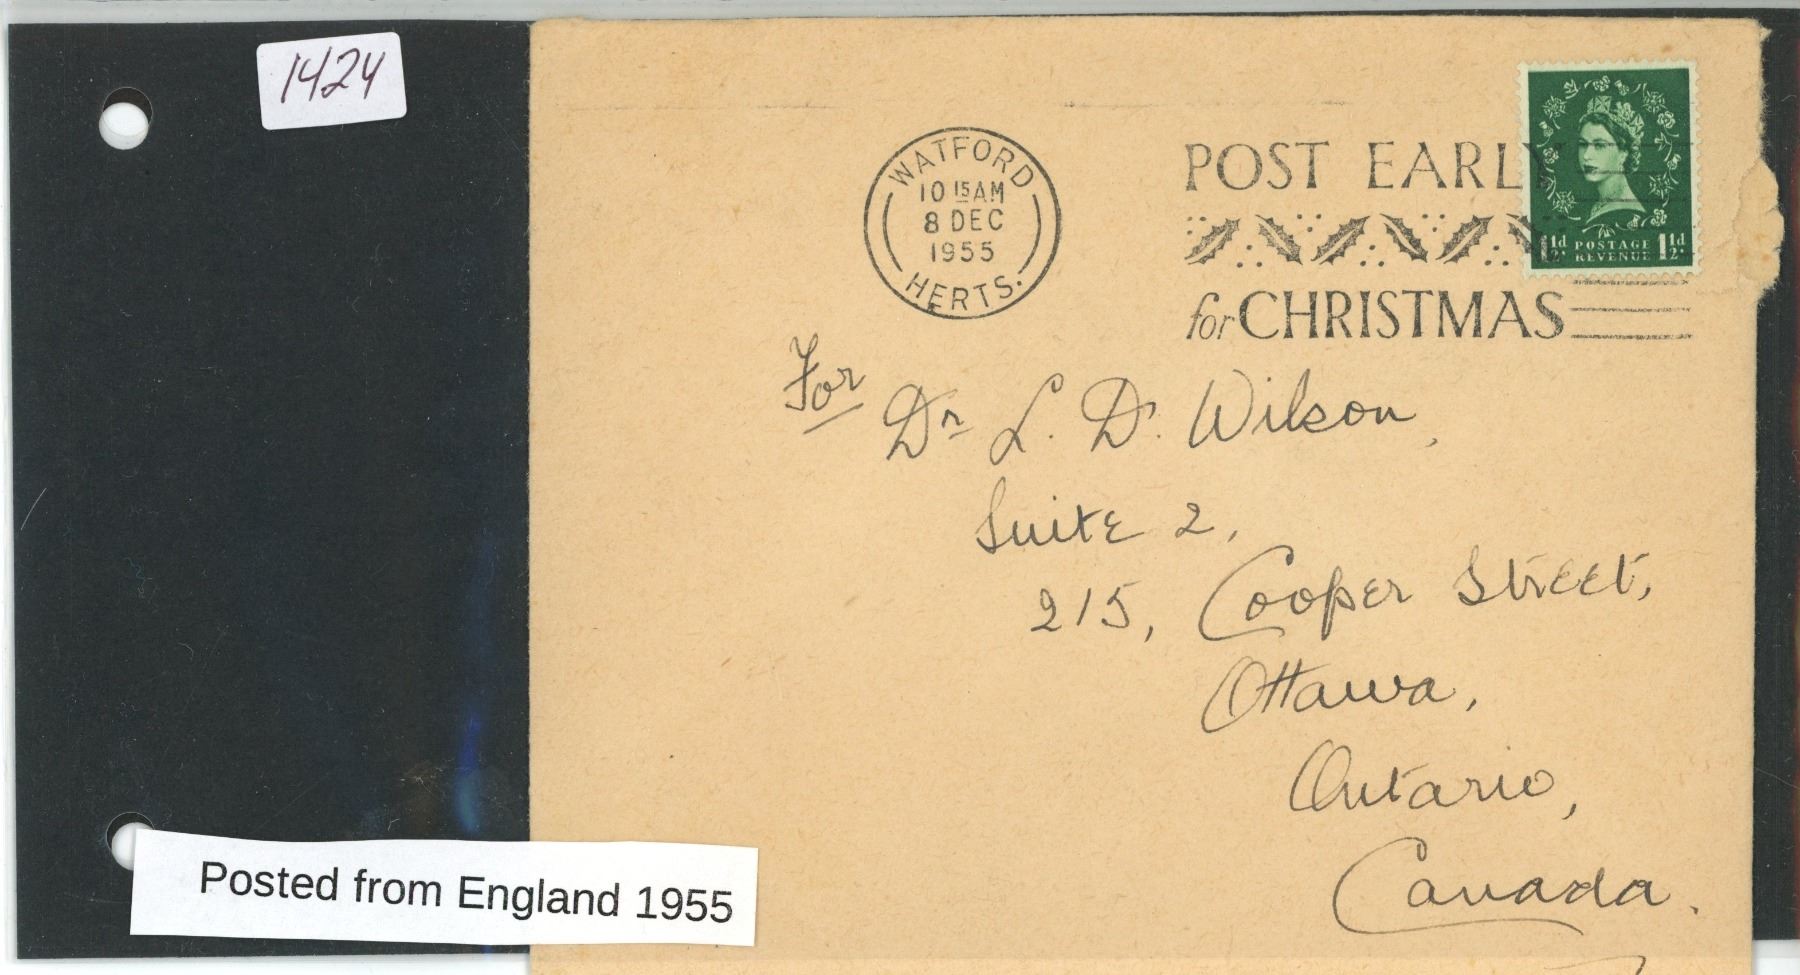 1424
WATFORD
10 15 AM
8 DEC
1955
HERTS.
POST EARLY
for CHRISTMAS
1½d POSTAGE REVENUE 1½d
For
Dr L. D. Wilson,
Suite 2,
215, Cooper Street,
Ottawa,
Ontario,
Canada.
Posted from England 1955